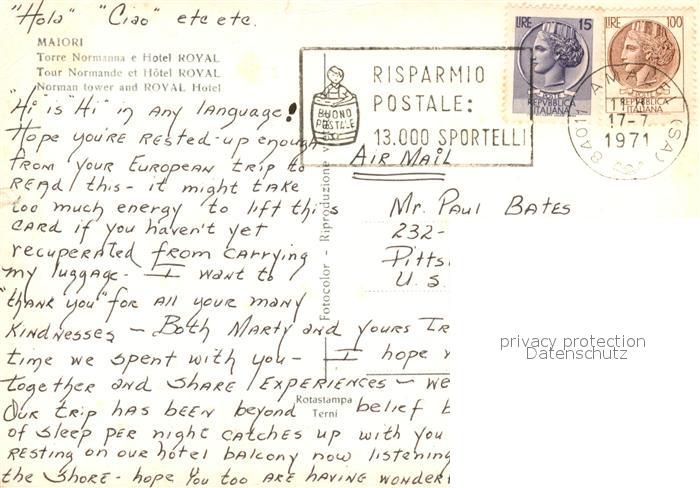 "Hola" "Ciao" etc etc.
MAIORI
Torre Normanna e Hotel ROYAL
Tour Normande et Hôtel ROYAL
Norman tower and ROYAL Hotel
"Hi" is "Hi" in any language!
Hope you're rested-up enough
from your European trip to
read this - it might take
too much energy to lift this
card if you haven't yet
recuperated from carrying
my luggage. I want to
"thank you" for all your many
kindnesses - Both Marty and yours Tr
time we spent with you - I hope
together and share experiences - we
Our trip has been beyond belief
of sleep per night catches up with you
resting on our hotel balcony now listening
the shore - hope you too are having wonder
Fotocolor - Riproduzione
Rotastampa
Terni
RISPARMIO
POSTALE:
13.000 SPORTELLI
BUONO
POSTALE
LIRE 15
REPVBBLICA
ITALIANA
LIRE 100
REPVBBLICA
ITALIANA
84011 AMA (SA)
17-7
1971
AIR MAIL
Mr. Paul Bates
232-
Pitts
U.S.
privacy protection
Datenschutz